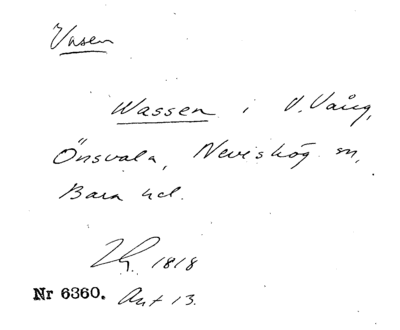 Vasen
Wassen i V. Vång,
Önsvala, Nevishög sn,
Bara hd.
1818
Nr 6360. Akt 13.